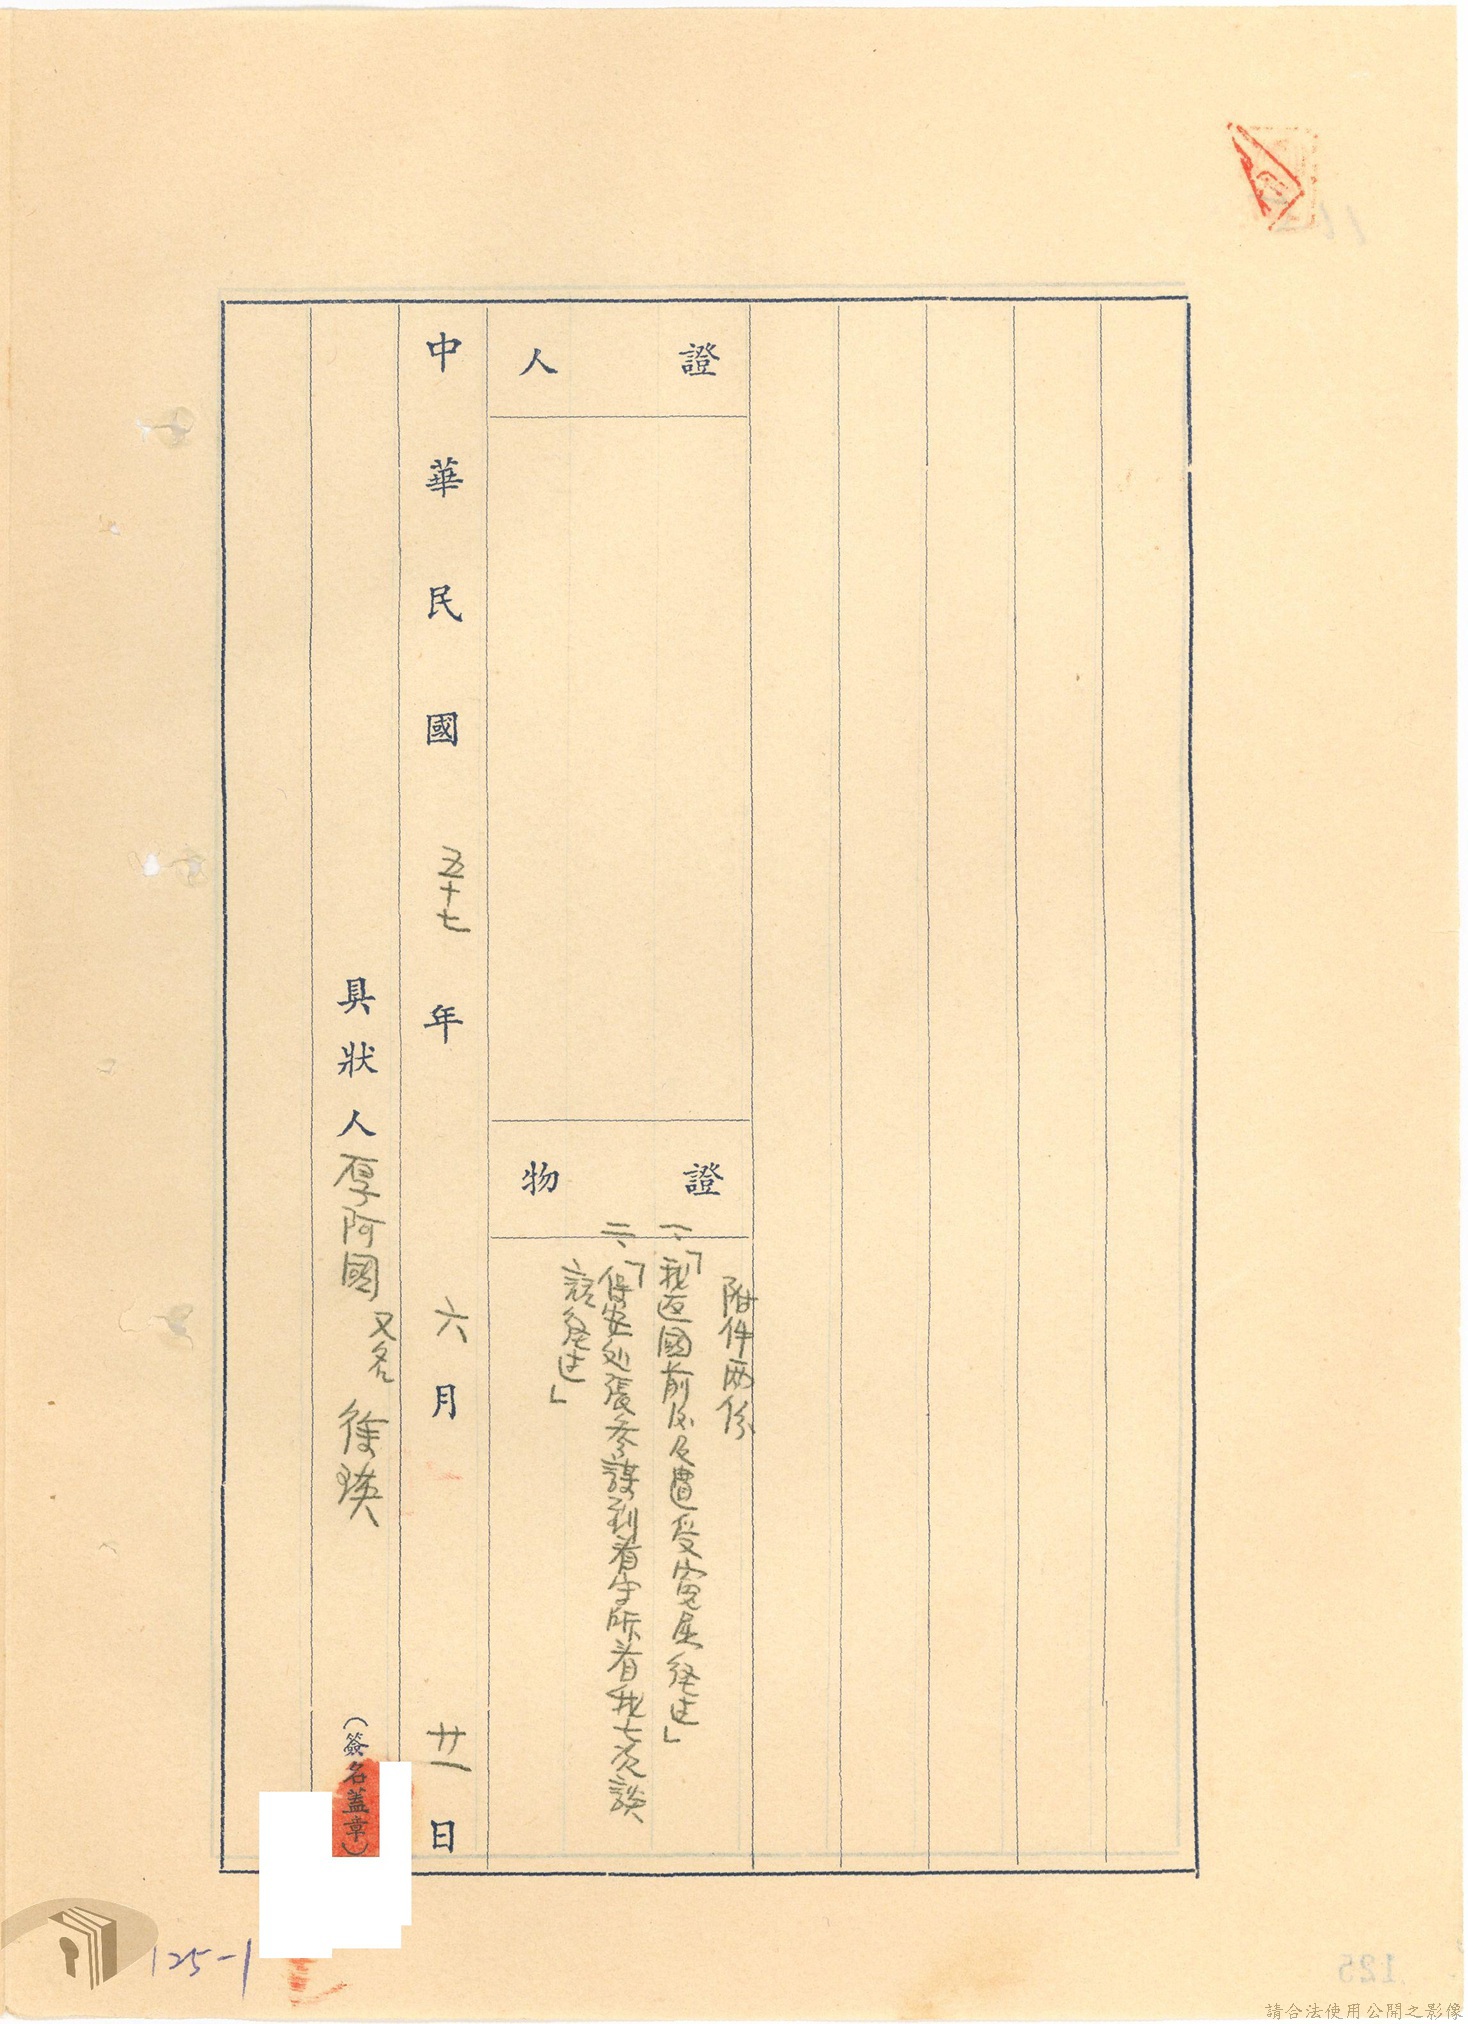 證人
證物
附件兩份
一、「我返國前後及遭受冤屈經过」
二、「保安处張參謀到看守所看我七次談
話經过」
中華民國五十七年六月廿一日
具狀人厚阿國又名徐瑛(簽名蓋章)
125-1
125
請合法使用公開之影像